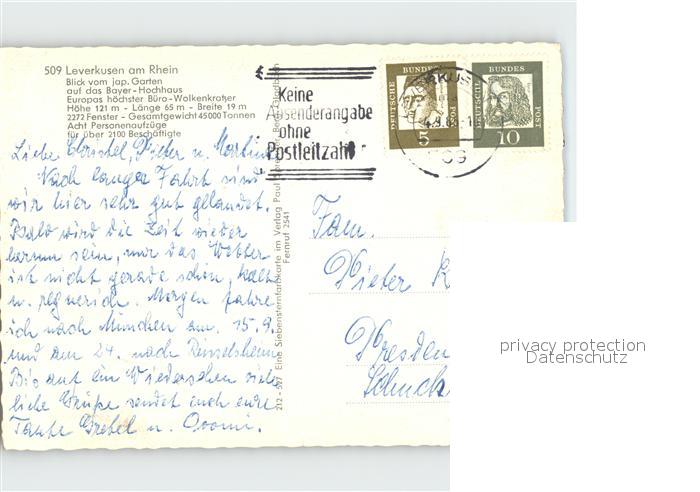 509 Leverkusen am Rhein
Blick vom jap. Garten
auf das Bayer - Hochhaus
Europas höchster Büro-Wolkenkratzer
Höhe 121 m - Länge 65 m - Breite 19 m
2272 Fenster - Gesamtgewicht 45000 Tonnen
Acht Personenaufzüge
für über 2100 Beschäftigte
Liebe Christel, Dieter u. Martina
Nach langer Fahrt sind
wir hier sehr gut gelandet.
Bald wird die Zeit wieder
herum sein, nur das Wetter
ist nicht gerade schön, kalt
u. regnerisch. Morgen fahre
ich nach München am 15.9.
und am 24. nach
Bis auf ein Wiedersehen viele
liebe Grüße sendet euch eure
Tante Gretel u.
212 - 592 Eine Siebensternfarbkarte im Verlag Paul
Fernruf 2541
Keine
Absenderangabe
ohne
Postleitzahl
DEUTSCHE BUNDES POST
5
DEUTSCHE BUNDES POST
10
Fam.
Dieter K
Dresden
privacy protection
Datenschutz